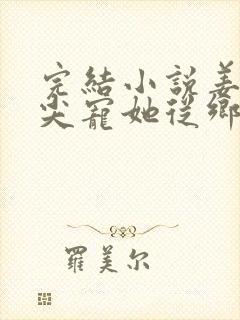 完結小説姜
尖寵她從鄉
羅美尔